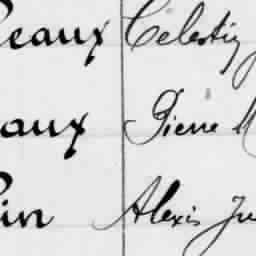 eaux Celestin
aux Pierre M
in Alexis Ju